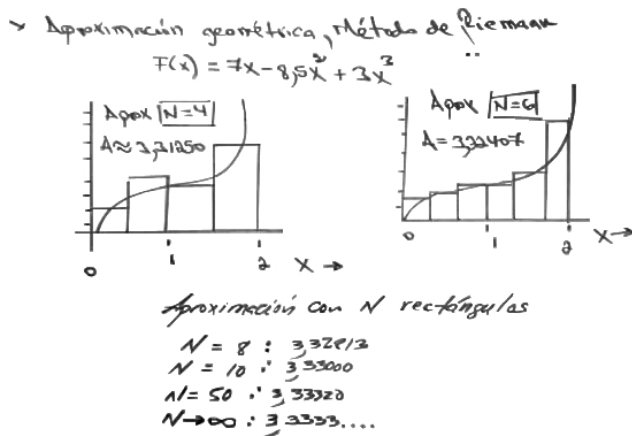 > Aproximación geométrica, Método de Riemann
F(x) = 7x - 8,5x² + 3x³
Aprox N=4
A≈3,31250
0 1 2 X →
Aprox N=6
A=3,32407
0 1 2 X →
Aproximación con N rectángulos
N = 8 : 3,32813
N = 10 : 3,33000
N = 50 : 3,33320
N→∞ : 3,3333....